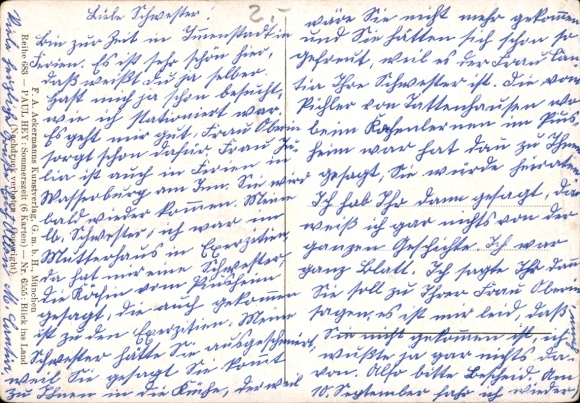 2.-
Liebe Schwester!
Bin zur Zeit in Immenstadt in
Ferien. Es ist sehr schön hier,
daß weißt du ja selber.
Hast mich ja schon besucht,
wie ich stationiert war.
Es geht mir gut. Frau Oberin
sorgt schon dafür. Frau Ju-
lia ist auch in Ferien in
Wasserburg am Inn. Sie wird
bald wieder kommen. Meine
lb. Schwester, ich war im
Mutterhaus in Exerzitien,
da hat mir eine Schwester
die Köchin vom
gesagt, die auch gekommen
ist zu den Exerzitien. Meine
Schwester hätte Sie ausgeschmiert,
weil Sie gesagt Sie kommt
zu Ihnen in die Küche, derweil
wäre Sie nicht mehr gekommen
und Sie hätten sich schon so
gefreut, weil es der Frau
Ihre Schwester ist. Die von
Pichler von Tuttenhausen wo
beim Kochenlernen im
heim war hat dau zu Ihnen
gesagt, Sie würde heiraten
Ich hab Ihr dann gesagt, da
weiß ich gar nichts von der
ganzen Geschichte. Ich war
ganz Blatt. Ich sagte Ihr dann
Sie soll zu Ihrer Frau Oberin
sagen, es ist mir leid, daß
Sie nicht gekommen ist, ich
wußte ja gar nichts da-
von. Also bitte Bescheid. Am
10. September fahr ich wieder
Viele herzliche Grüße
F. A. Ackermanns Kunstverlag, G. m. b. H., München
Reihe 683 — PAUL HEY: Sommerszeit (6 Karten) — Nr. 6555: Blick ins Land
(Nachdruck verboten — Copyright)